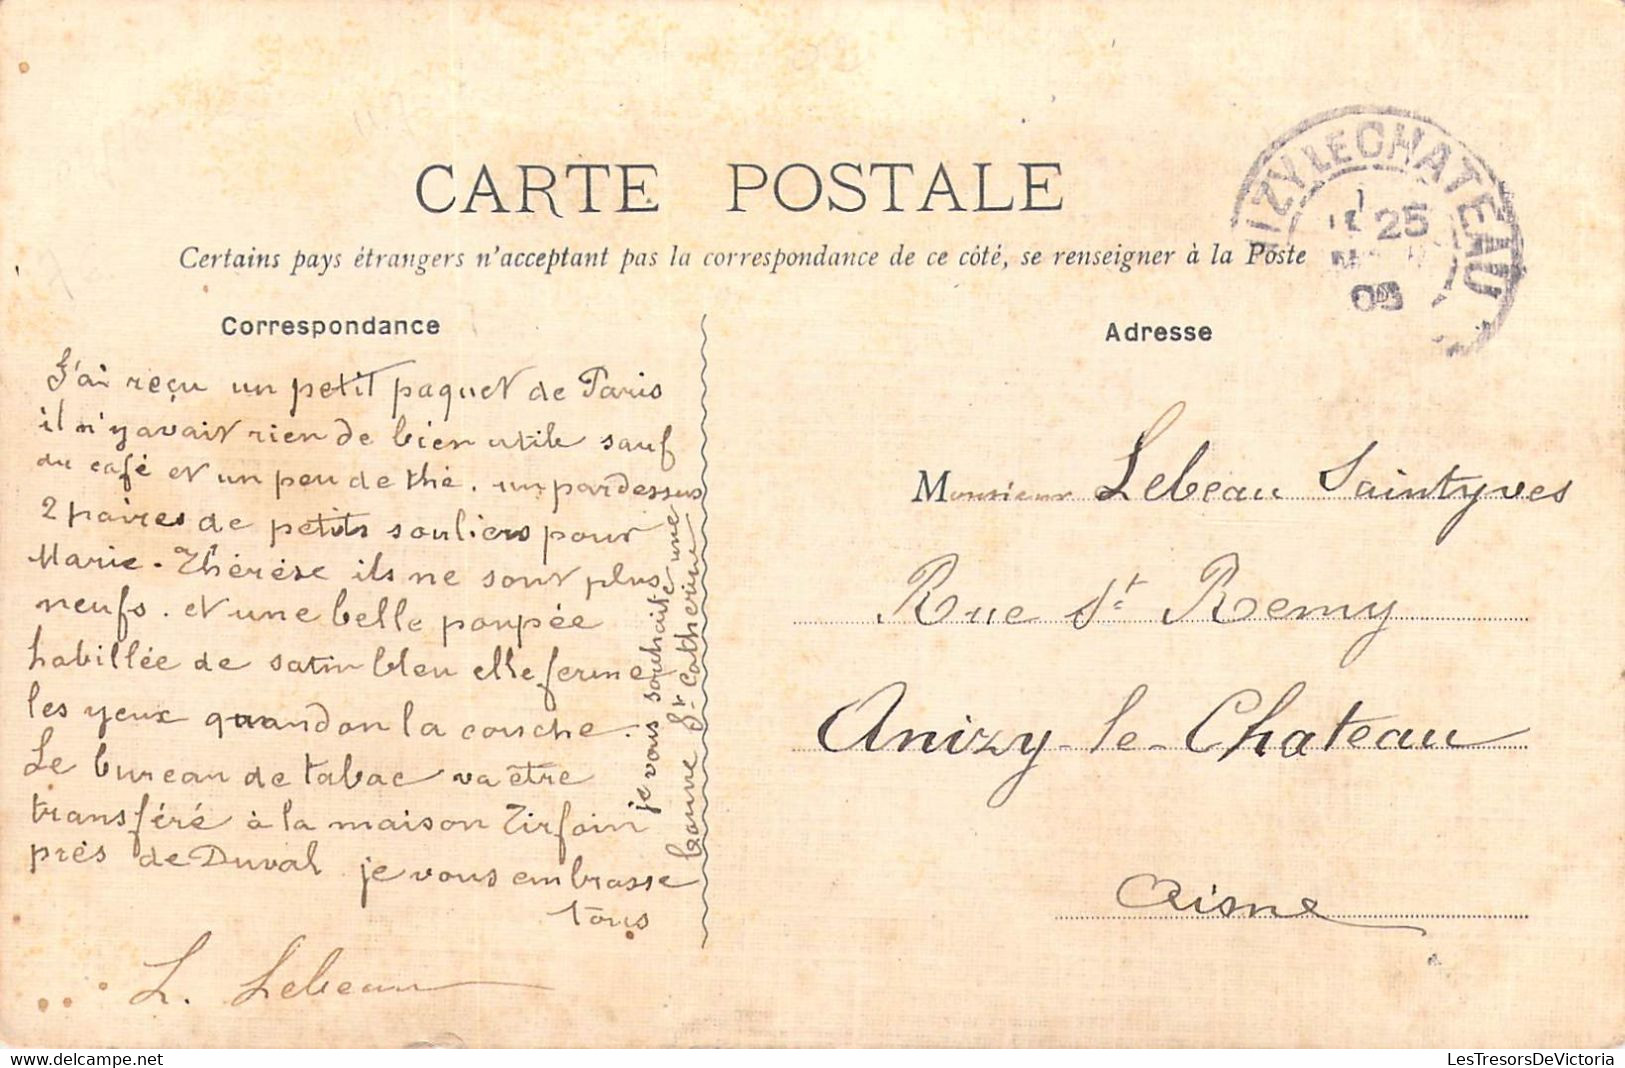 CARTE POSTALE
Certains pays étrangers n'acceptant pas la correspondance de ce côté, se renseigner à la Poste
IZY LE CHATEAU
25
05
Correspondance
J'ai reçu un petit paquet de Paris
il n'y avait rien de bien utile sauf
du café et un peu de thé. un pardessus
2 paires de petits souliers pour
Marie-Thérèse ils ne sont plus
neufs. et une belle poupée
habillée de satin bleu elle ferme
les yeux quand on la couche.
Le bureau de tabac va être
transféré à la maison Tirfoin
près de Duval je vous embrasse
tous
L. Lebeau
je vous souhaite une
bonne St Catherine
Adresse
Monsieur Lebeau Saintyves
Rue St Remy
Anizy-le-Chateau
Aisne
Delcampe.net
LesTresorsDeVictoria